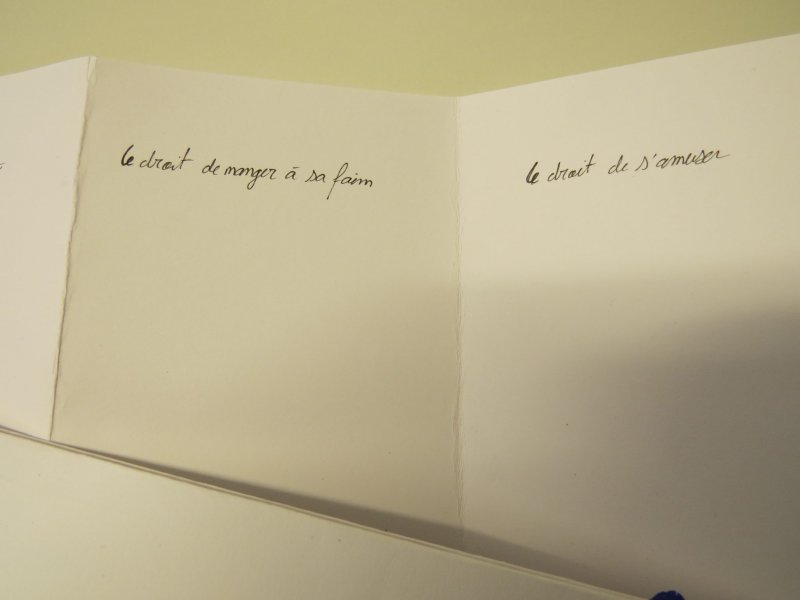 le droit de manger à sa faim
le droit de s'amuser